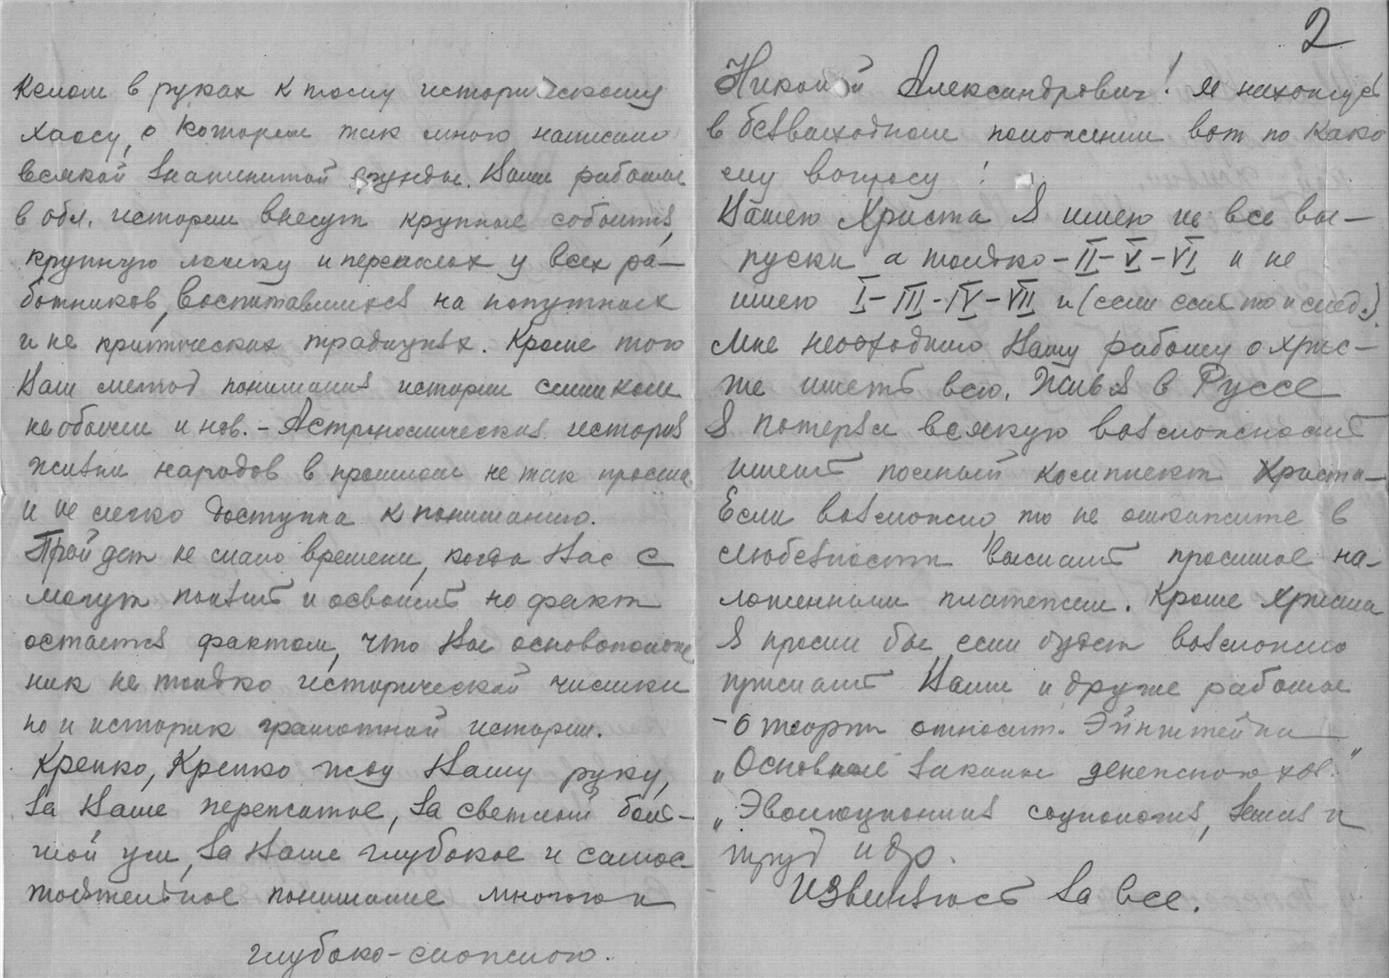 келом в руках к тому историческому
хаосу, о котором так много написано
всякой знаменитой ерунды. Ваши работы
в обл. истории внесут крупные события,
крупную ломку и переполох у всех ра-
ботников, воспитавшихся на попутных
и не критических традициях. Кроме того
Ваш метод понимания истории слишком
необычен и нов. - Астрономическая история
жизни народов в прошлом не так проста
и не легко доступна к пониманию.
Пройдет не мало времени, когда Вас с
могут понять и освоить но факт
остается фактом, что Вы основополож
ник не только исторической чистки
но и историк грамотной истории.
Крепко, Крепко жму Вашу руку,
за Ваше переписание, за светлый боль-
шой ум, за Ваше глубокое и самос
тоятельное понимание многого и
глубоко-сложного.
2
Николай Александрович! Я нахожусь
в безвыходном положении вот по како
му вопросу !
Вашего Христа я имею не все вы-
пуски а только - II - V - VI и не
имею I - III - IV - VII и (если есть то и след.)
Мне необходимо Вашу работу о Хрис-
те иметь всю. Живя в Руссе
я потерял всякую возможность
иметь полный комплект Христа-
Если возможно то не откажите в
любезности выслать просимое на-
ложенным платежем. Кроме Христа
я просил бы если будет возможно
прислать Ваши и другие работы
- о теории относит. Эйнштейна
„Основные законы денежного хоз."
„Эволюционная социология, земля и
труд и др.
Извиняюсь за все.